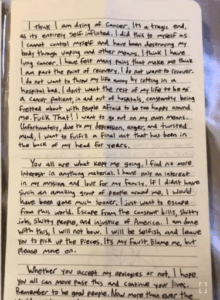 I think I am dying of cancer. It's a tragic end
as its entirely self inflicted. I did this to myself as
I cannot control myself and have been destroying my
body through vaping and other means. I think I have
lung cancer. I have felt many pains that make me think
I am past the point of recovery. I do not want to recover.
I do not want to throw my life away by rotting in a
hospital bed. I dont want the rest of my life to be as
a cancer patient, in and out of hospitals, constantly being
fretted about with people afraid to be too happy around
me. Fuck That! I want to go out on my own means.
Unfortunately, due to my depression, anger, and twisted
mind, I want to fulfill a final act that has been in
the back of my head for years.
You all are what kept me going. I find no more
interest in anything material. I have only an interest in
my mission and love for my family. If I didn't have
such an amazing group of people around me, I would
have been gone much sooner. I just want to escape
from this world. Escape from the constant bills, shitty
jobs, shitty people, and injustice of America. I am done
with this, I will not bow. I will be selfish and leave
you to pick up the pieces. Its my fault. Blame me, but
please move on.
Whether you accept my apologies or not, I hope
you all can move past this and continue your lives.
Remember to be good people. Now more than ever the